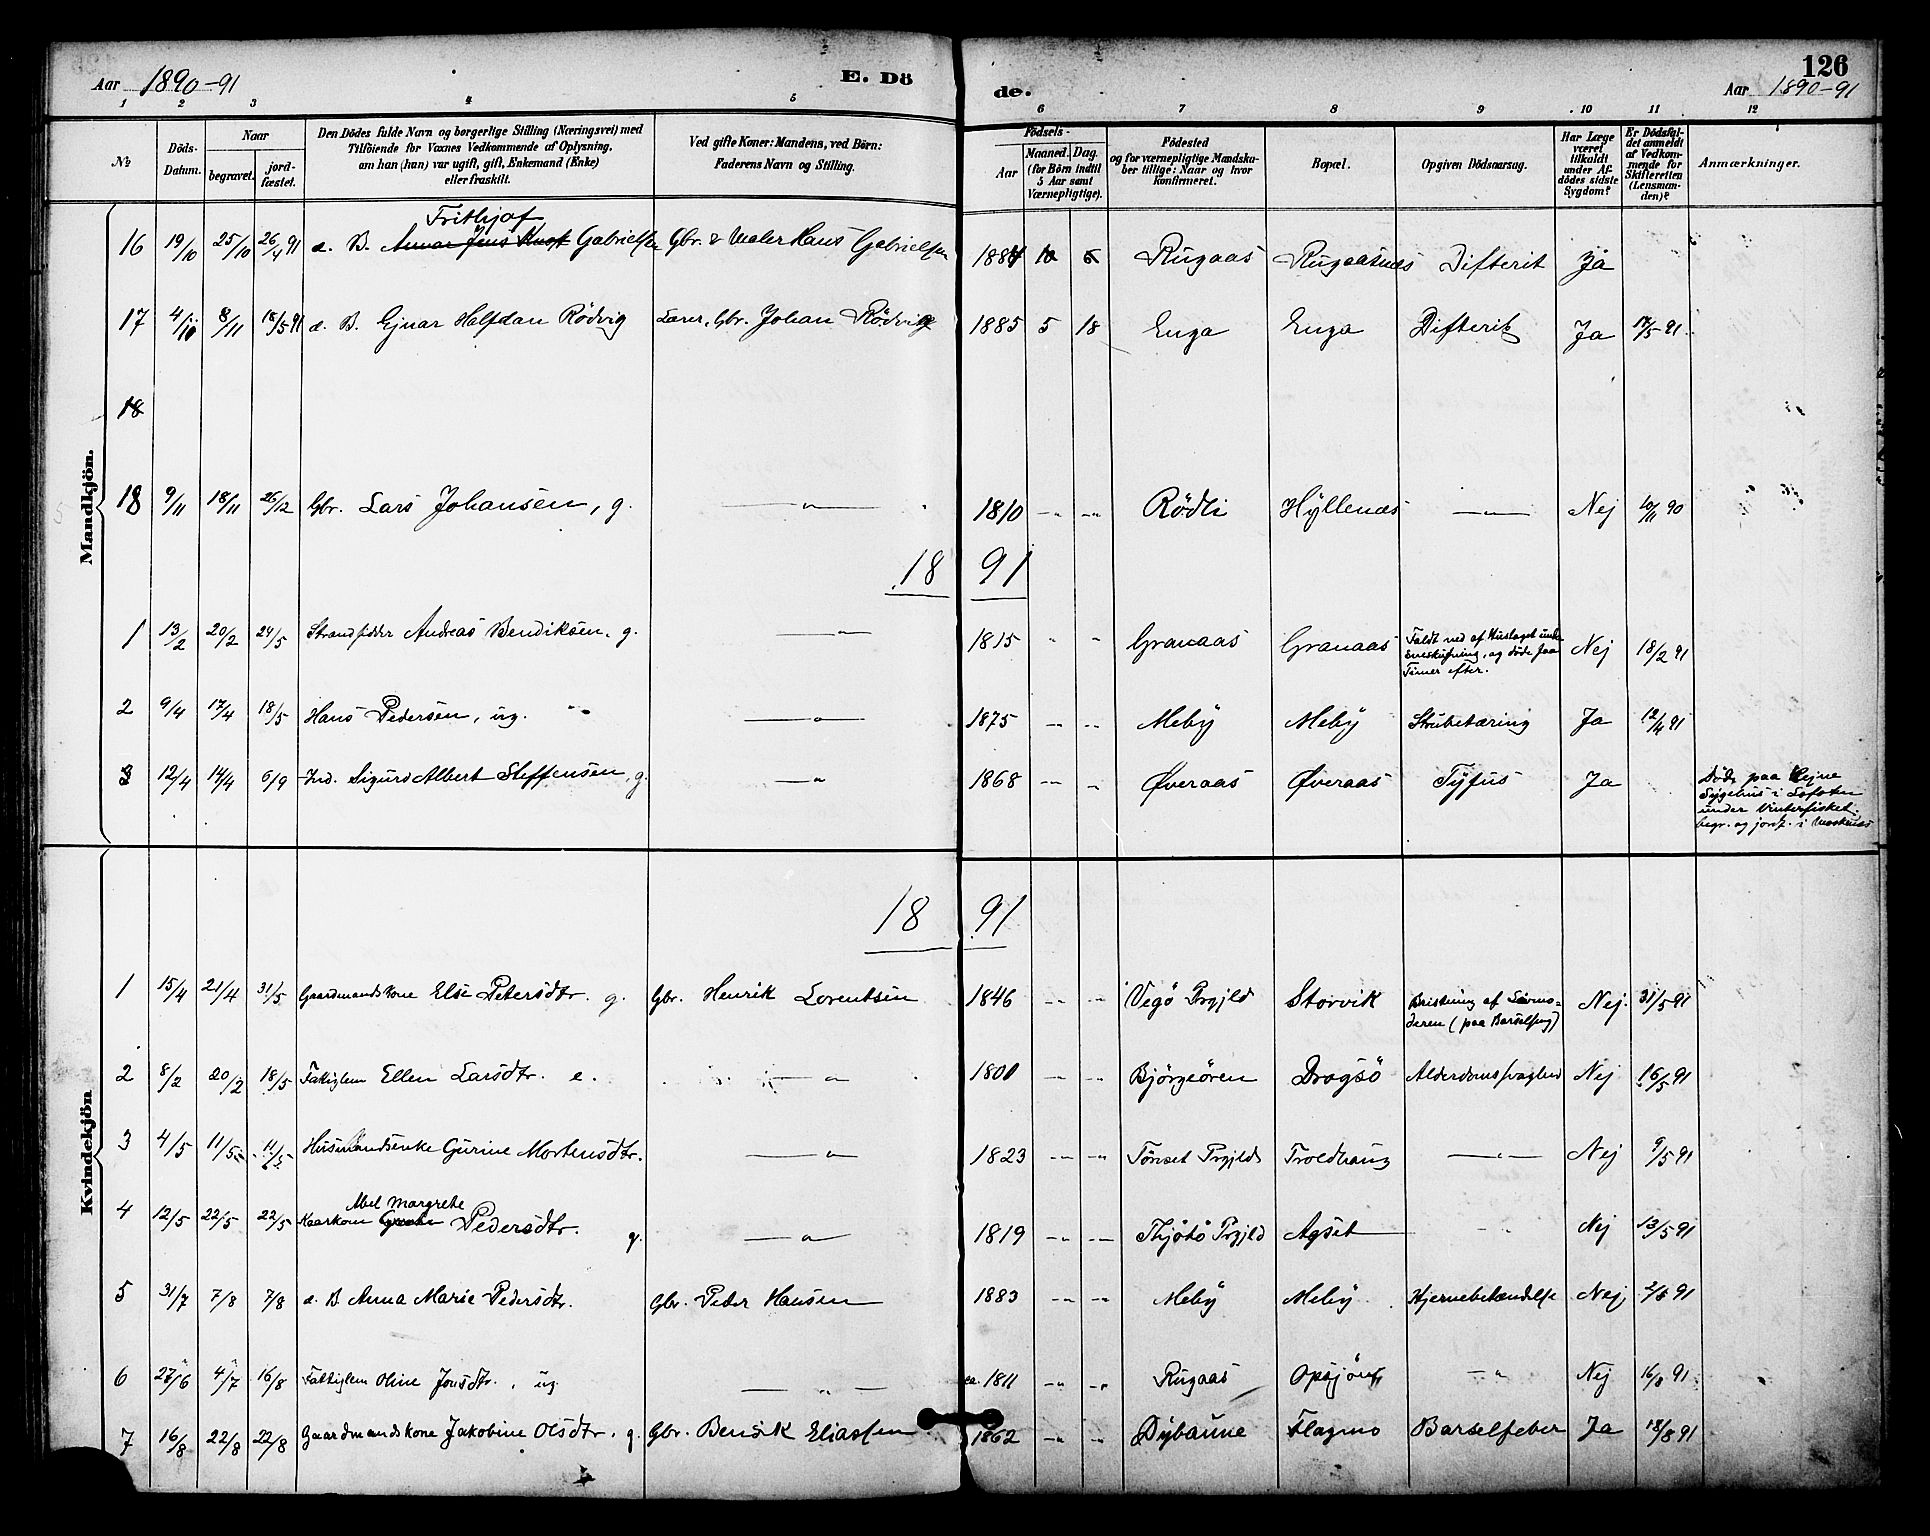 Aar 1890-91 E. Dö de. 126
Aar 1890-91
1 2 3 4 5 6 7 8 9 10 11 12
No
Döds-Datum.
Naar
begravet.
jord-fæstet.
Den Dödes fulde Navn og borgerlige Stilling (Næringsvei) med
Tilföiende for Voxnes Vedkommende af Oplysning,
om han (hun) var ugift, gift, Enkemand (Enke)
eller fraskilt.
Ved gifte Koner: Mandens, ved Börn:
Faderens Navn og Stilling.
Födsels-
Aar
Maaned. Dag.
(for Börn indtil
5 Aar samt
Værnepligtige).
Födested
og for værnepligtige Mandska-
ber tillige: Naar og hvor
konfirmeret.
Bopæl.
Opgiven Dödsaarsag.
Har Læge
været
tilkaldt
under Af-
dødes sidste
Sygdom?
Er Dödsfal-
det anmeldt
af Vedkom-
mende for
Skifteretten
(Lensman-
den)?
Anmærkninger.
Mandkjön.
Frithjof
16 19/10 25/10 26/4 91 d. B. Gabrielsen Gbr. & Maler Hans Gabrielsen 1884 10 6 Rugaas Rugaasnæs Difterit Ja
17 4/11 8/11 18/5 91 d. B. Ejnar Halfdan Rödvig Lærer, Gbr. Johan Rödvig 1885 5 18 Enga Enga Difterit Ja 17/5 91.
18
18 9/11 18/11 26/12 Gbr. Lars Johansen, g. —„— 1810 -„- -„- Rödli Hyllenæs —„— Nej 10/11 90
18 91
1 13/2 20/2 24/5 Strandsidder Andreas Bendiksen, g. —„— 1815 „ „ Granaas Granaas Faldt ned af Huslaget under
Sneskufning, og døde faa
Timer efter. Nej 18/2 91
2 9/4 17/4 18/5 Hans Pedersen, ug. —„— 1875 -„- -„- Meby Meby Strubetæring Ja 12/4 91
3 12/4 14/4 6/9 Ind. Sigurd Albert Steffensen, g. —„ 1868 -„- „ Øveraas Øveraas Tyfus Ja
Döde paa Rejne
Sygehus i Lofoten
under Vinterfisket.
begr. og jordf. i Moskenæs
Kvindekjön
18 91
1 15/4 21/4 31/5 Gaardmandskone Else Petersdtr. g. Gbr. Henrik Lorentsen 1846 -„- -„- Vegö Prgjld Storvik Bristning af Livmo-
deren (paa Barselseng) Nej. 31/5 91
2 8/2 20/2 18/5 Fattiglem Ellen Larsdtr. e. —„ 1801 -„- -„- Bjørgeören Dragsö Alderdomssvaghed Nej 16/5 91
3 4/5 11/5 11/5 Husmandsenke Gurine Mortensdtr. —„ 1823 -„- -„- Tönset Prgjld Troldhaug —„— Nej 9/5 91
Abel Margrethe
4 12/5 22/5 22/5 Kaarkone Pedersdtr. g. —„ 1819 -„- -„- Thjötö Prgjld Agset „ Nej 13/5 91
5 31/7 7/8 7/8 d. B Anna Marie Pedersdtr. Gbr. Peter Hansen 1883 -„- -„- Meby Meby Hjernebetændelse Nej 2/8 91
6 27/6 4/7 16/8 Fattiglem Oline Jonsdtr., ug —„— ca. 1811 -„ „ Rugaas Opsjön —„ Nej 16/8 91
7 16/8 22/8 22/8 Gaardmandskone Jakobine Olsdtr. g. Gbr. Bendik Eliassen 1862 -„ „ Dybaune Flagmo Barselfeber Ja 18/8 91